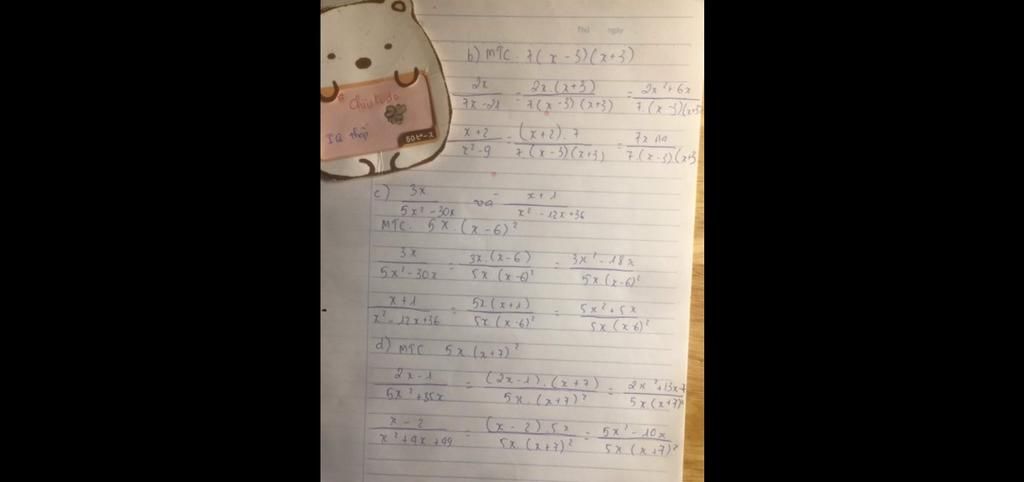 Thứ ngày
b) MTC. 7(x-3)(x+3)
2x/7x-21 = 2x.(x+3)/7(x-3)(x+3) = 2x²+6x/7(x-3)(x+3)
x+2/x²-9 = (x+2).7/7(x-3)(x+3) = 7x /7(x-3)(x+3
# Chiu
IQ thấp
50t²-x
c) 3x/5x²-30x và x+1/x²-12x+36
MTC. 5x.(x-6)²
3x/5x²-30x = 3x.(x-6)/5x(x-6)² = 3x²-18x/5x(x-6)²
x+1/x²-12x+36 = 5x(x+1)/5x(x-6)² = 5x²+5x/5x(x6)²
d) MTC. 5x(x+7)²
2x-1/5x²+35x = (2x-1).(x+7)/5x.(x+7)² = 2x²+13x-7/5x(x+7)²
x-2/x²+4x+49 = (x-2).5x/5x(x+7)² = 5x²-10x/5x.(x+7)²